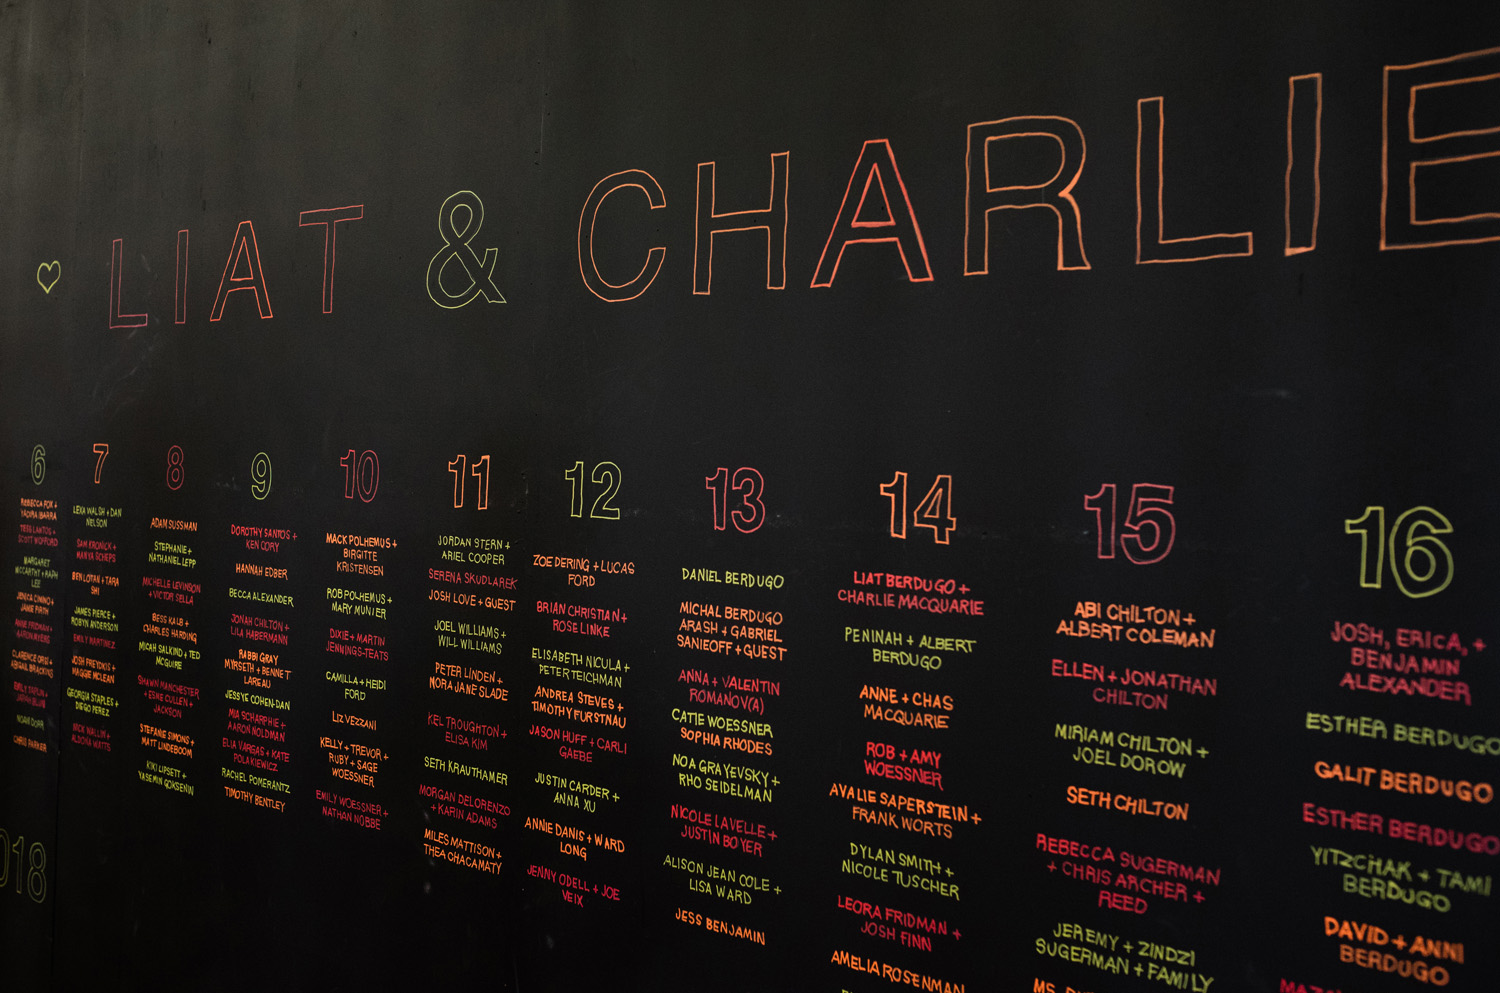 ♡ LIAT & CHARLIE
6
REBECCA FOX +
YADIRA IBARRA
TESS LANTOS +
SCOTT WOFFORD
MARGARET
MCCARTHY + RAPH
LEE
JENICA CIMINO +
JAMIE FIRTH
ANNE FRIDMAN +
AARON MYERS
CLARENCE ORSI +
ABIGAIL BRACKINS
EMILY TAPLIN +
NOAM DORR
CHRIS PARKER
7
LEXA WALSH + DAN
NELSON
SAM KRONICK +
MANYA SCHEPS
BEN LOTAN + TARA
SHI
JAMES PIERCE +
ROBYN ANDERSON
EMILY MARTINEZ
JOSH FREYDKIS +
MAGGIE MCLEAN
GEORGIA STAPLES +
DIEGO PEREZ
NICK WALLIN +
ALDONA WATTS
8
ADAM SUSSMAN
STEPHANIE +
NATHANIEL LEPP
MICHELLE LEVINSON
+ VICTOR SELLA
BESS KALB +
CHARLES HARDING
MICAH SALKIND + TED
MCGUIRE
SHAWN MANCHESTER
+ ESME CULLEN +
JACKSON
STEFANIE SIMONS +
MATT LINDEBOOM
KIKI LIPSETT +
YASEMIN GOKSENIN
9
DOROTHY SANTOS +
KEN CORY
HANNAH EDBER
BECCA ALEXANDER
JONAH CHILTON +
LILA HABERMANN
RABBI GRAY
MYRSETH + BENNET
LAREAU
JESSYE COHEN-DAN
MIA SCHARPHIE +
AARON NOLDMAN
ELIA VARGAS + KATE
POLAKIEWICZ
RACHEL POMERANTZ
TIMOTHY BENTLEY
10
MACK POLHEMUS +
BIRGITTE
KRISTENSEN
ROB POLHEMUS +
MARY MUNTER
DIXIE + MARTIN
JENNINGS-TEATS
CAMILLA + HEIDI
FORD
LIZ VEZZANI
KELLY + TREVOR +
RUBY + SAGE
WOESSNER
EMILY WOESSNER +
NATHAN NOBBE
11
JORDAN STERN +
ARIEL COOPER
SERENA SKUDLAREK
JOSH LOVE + GUEST
JOEL WILLIAMS +
WILL WILLIAMS
PETER LINDEN +
NORA JANE SLADE
KEL TROUGHTON +
ELISA KIM
SETH KRAUTHAMER
MORGAN DELORENZO
+ KARIN ADAMS
MILES MATTISON +
THEA CHACAMATY
12
ZOE DERING + LUCAS
FORD
BRIAN CHRISTIAN +
ROSE LINKE
ELISABETH NICULA +
PETER TEICHMAN
ANDREA STEVES +
TIMOTHY FURSTNAU
JASON HUFF + CARLI
GAEBE
JUSTIN CARDER +
ANNA XU
ANNIE DANIS + WARD
LONG
JENNY ODELL + JOE
VEIX
13
DANIEL BERDUGO
MICHAL BERDUGO
ARASH + GABRIEL
SANIEOFF + GUEST
ANNA + VALENTIN
ROMANOV(A)
CATIE WOESSNER
SOPHIA RHODES
NOA GRAYEVSKY +
RHO SEIDELMAN
NICOLE LAVELLE +
JUSTIN BOYER
ALISON JEAN COLE +
LISA WARD
JESS BENJAMIN
14
LIAT BERDUGO +
CHARLIE MACQUARIE
PENINAH + ALBERT
BERDUGO
ANNE + CHAS
MACQUARIE
ROB + AMY
WOESSNER
AVALIE SAPERSTEIN +
FRANK WORTS
DYLAN SMITH +
NICOLE TUSCHER
LEORA FRIDMAN +
JOSH FINN
AMELIA ROSENMAN
15
ABI CHILTON +
ALBERT COLEMAN
ELLEN + JONATHAN
CHILTON
MIRIAM CHILTON +
JOEL DOROW
SETH CHILTON
REBECCA SUGERMAN
+ CHRIS ARCHER +
REED
JEREMY + ZINDZI
SUGERMAN + FAMILY
MS.
16
JOSH, ERICA, +
BENJAMIN
ALEXANDER
ESTHER BERDUGO
GALIT BERDUGO
ESTHER BERDUGO
YITZCHAK + TAMI
BERDUGO
DAVID + ANNI
BERDUGO
018